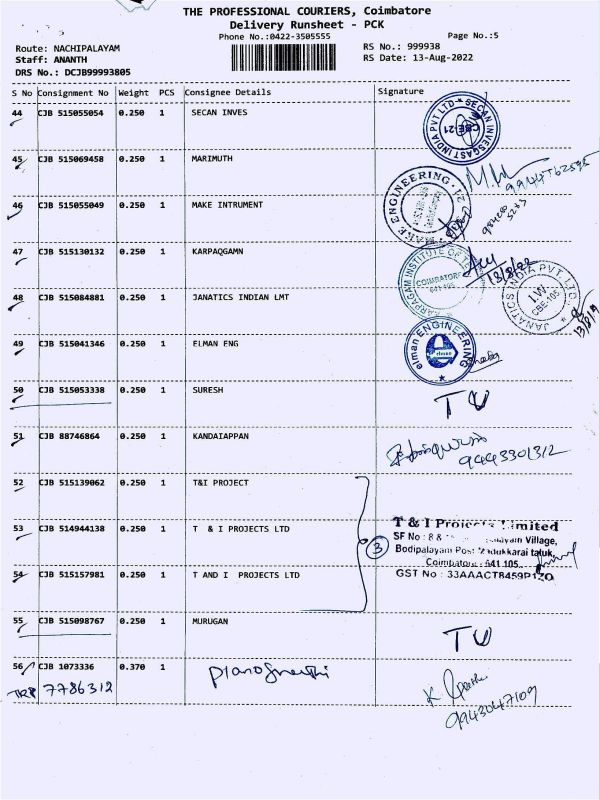 THE PROFESSIONAL COURIERS, Coimbatore
Delivery Runsheet - PCK
Phone No.:0422-3505555
Page No.:5
Route: NACHIPALAYAM
RS No.: 999938
Staff: ANANTH
RS Date: 13-Aug-2022
DRS No.: DCJB99993805
S No Consignment No Weight PCS Consignee Details Signature
44 CJB 515055054 0.250 1 SECAN INVES
SECAN INVESCAST INDIA PVT LTD
CBE-21
45 CJB 515069458 0.250 1 MARIMUTH
46 CJB 515055049 0.250 1 MAKE INTRUMENT
MAKE ENGINEERING
47 CJB 515130132 0.250 1 KARPAQGAMN
KARPAGAM INSTITUTE OF
COIMBATORE
641 105
13/8/22
48 CJB 515084881 0.250 1 JANATICS INDIAN LMT
JANATICS INDIA PVT. LTD.
I.W
CBE-105
49 CJB 515041346 0.250 1 ELMAN ENG
elman ENGINEERING
elman
50 CJB 515053338 0.250 1 SURESH
51 CJB 88746864 0.250 1 KANDAIAPPAN
9443301312
52 CJB 515139062 0.250 1 T&I PROJECT
53 CJB 514944138 0.250 1 T & I PROJECTS LTD
3
T & I Projects Limited
SF No : 8 &
Village,
Bodipalayam Post Madukkarai taluk,
Coimbatore - 641 105.
GST No : 33AAACT8459P1ZO
54 CJB 515157981 0.250 1 T AND I PROJECTS LTD
55 CJB 515098767 0.250 1 MURUGAN
56 CJB 1073336 0.370 1
7786312
9943047109